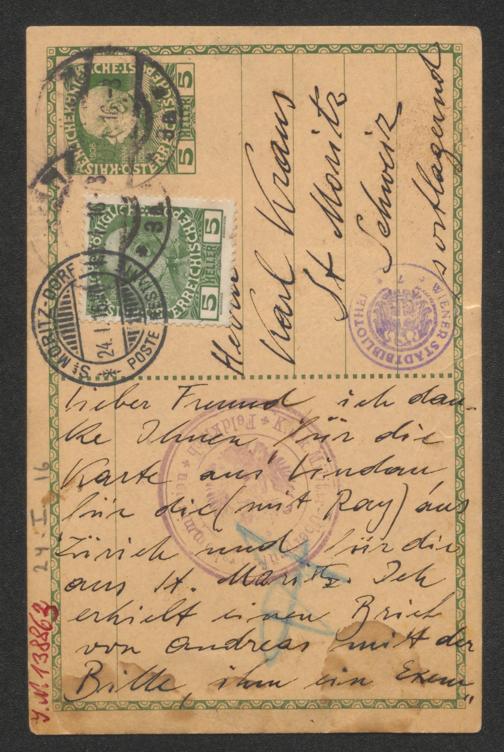 5
HELLER
5
HELLER
Herrn
Karl Kraus
St Moritz
Schweiz
postlagernd
ST MORITZ-DORF
24.I.
WIENER STADTBIBLIOTHEK
Feldkirch
lieber Freund ich dan-
ke Ihnen für die
Karte aus Lindau
für die (mit Ray) aus
Zürich und für die
aus St. Moritz. Ich
erhielt einen Brief
von Andreas mit der
Bitte, ihm ein Exem„
24.I.16
J.N. 138863